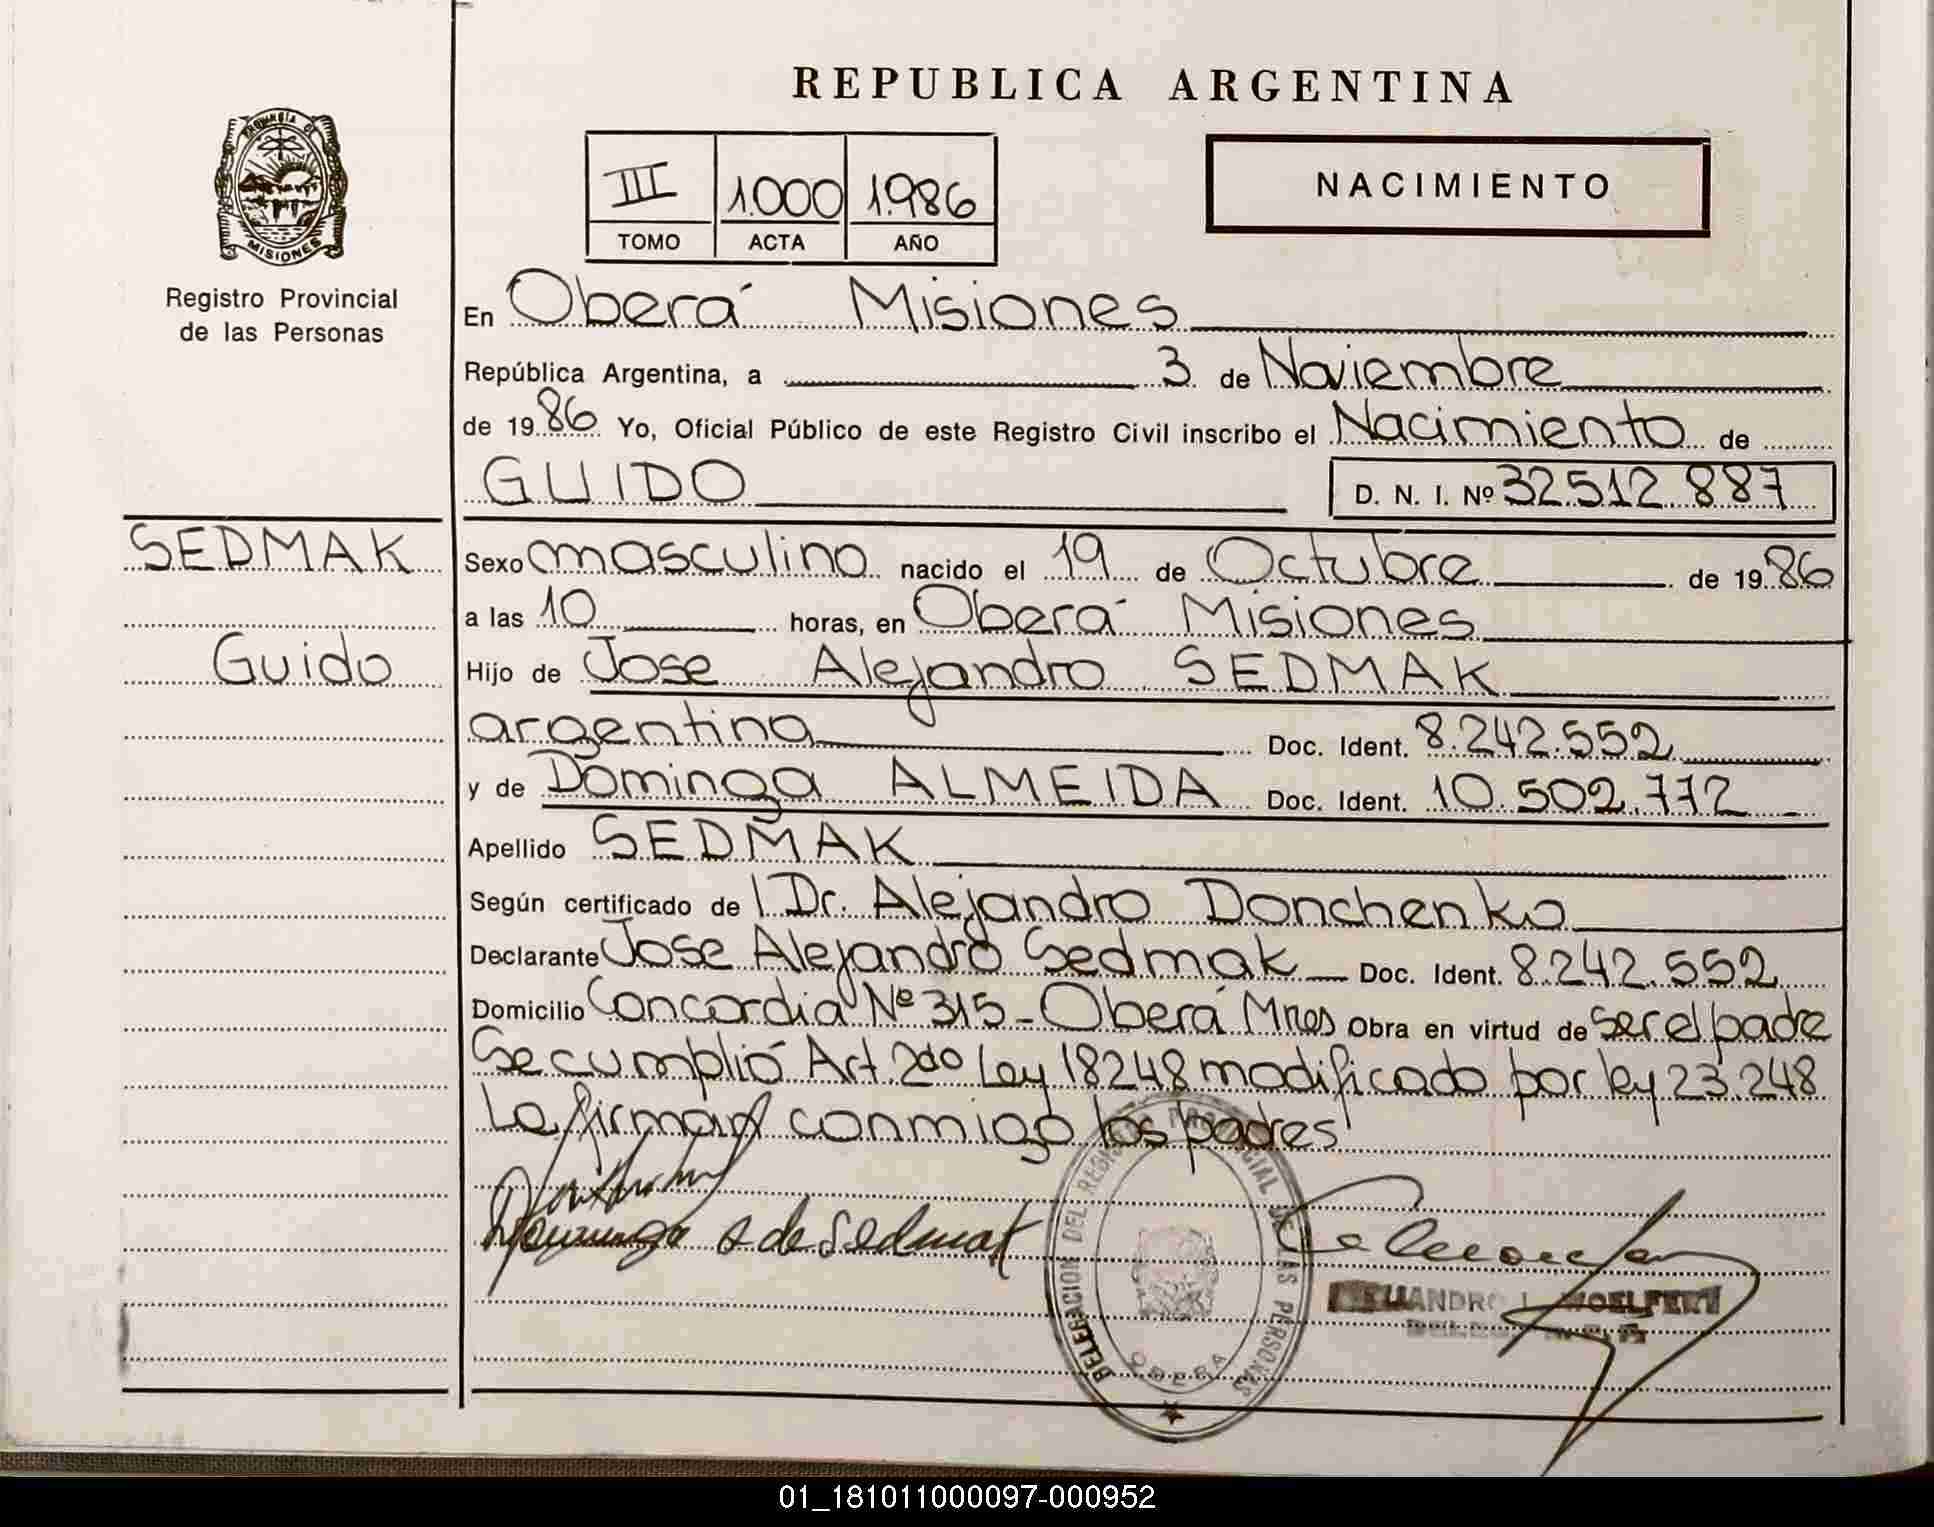 REPUBLICA ARGENTINA
PROVINCIA DE
MISIONES
Registro Provincial
de las Personas
III 1.000 1.986
TOMO ACTA AÑO
NACIMIENTO
En Oberá Misiones
República Argentina, a 3 de Noviembre
de 19 86 Yo, Oficial Público de este Registro Civil inscribo el Nacimiento de
GUIDO D. N. I. Nº 32.512.887
SEDMAK
Guido
Sexo masculino nacido el 19 de Octubre de 19 86
a las 10 horas, en Oberá Misiones
Hijo de Jose Alejandro SEDMAK
argentina Doc. Ident. 8.242.552
y de Dominga ALMEIDA Doc. Ident. 10.502.772
Apellido SEDMAK
Según certificado de l Dr. Alejandro Donchenko
Declarante Jose Alejandro Sedmak Doc. Ident. 8.242.552
Domicilio Concordia Nº 315 - Oberá Mnes Obra en virtud de ser el padre
Se cumplió Art. 2do Ley 18248 modificado por ley 23.248
La firman conmigo los padres
Dominga A de Sedmak
DELEGACION DEL REGISTRO PROVINCIAL DE LAS PERSONAS
OBERA
WOELFERT
01_181011000097-000952